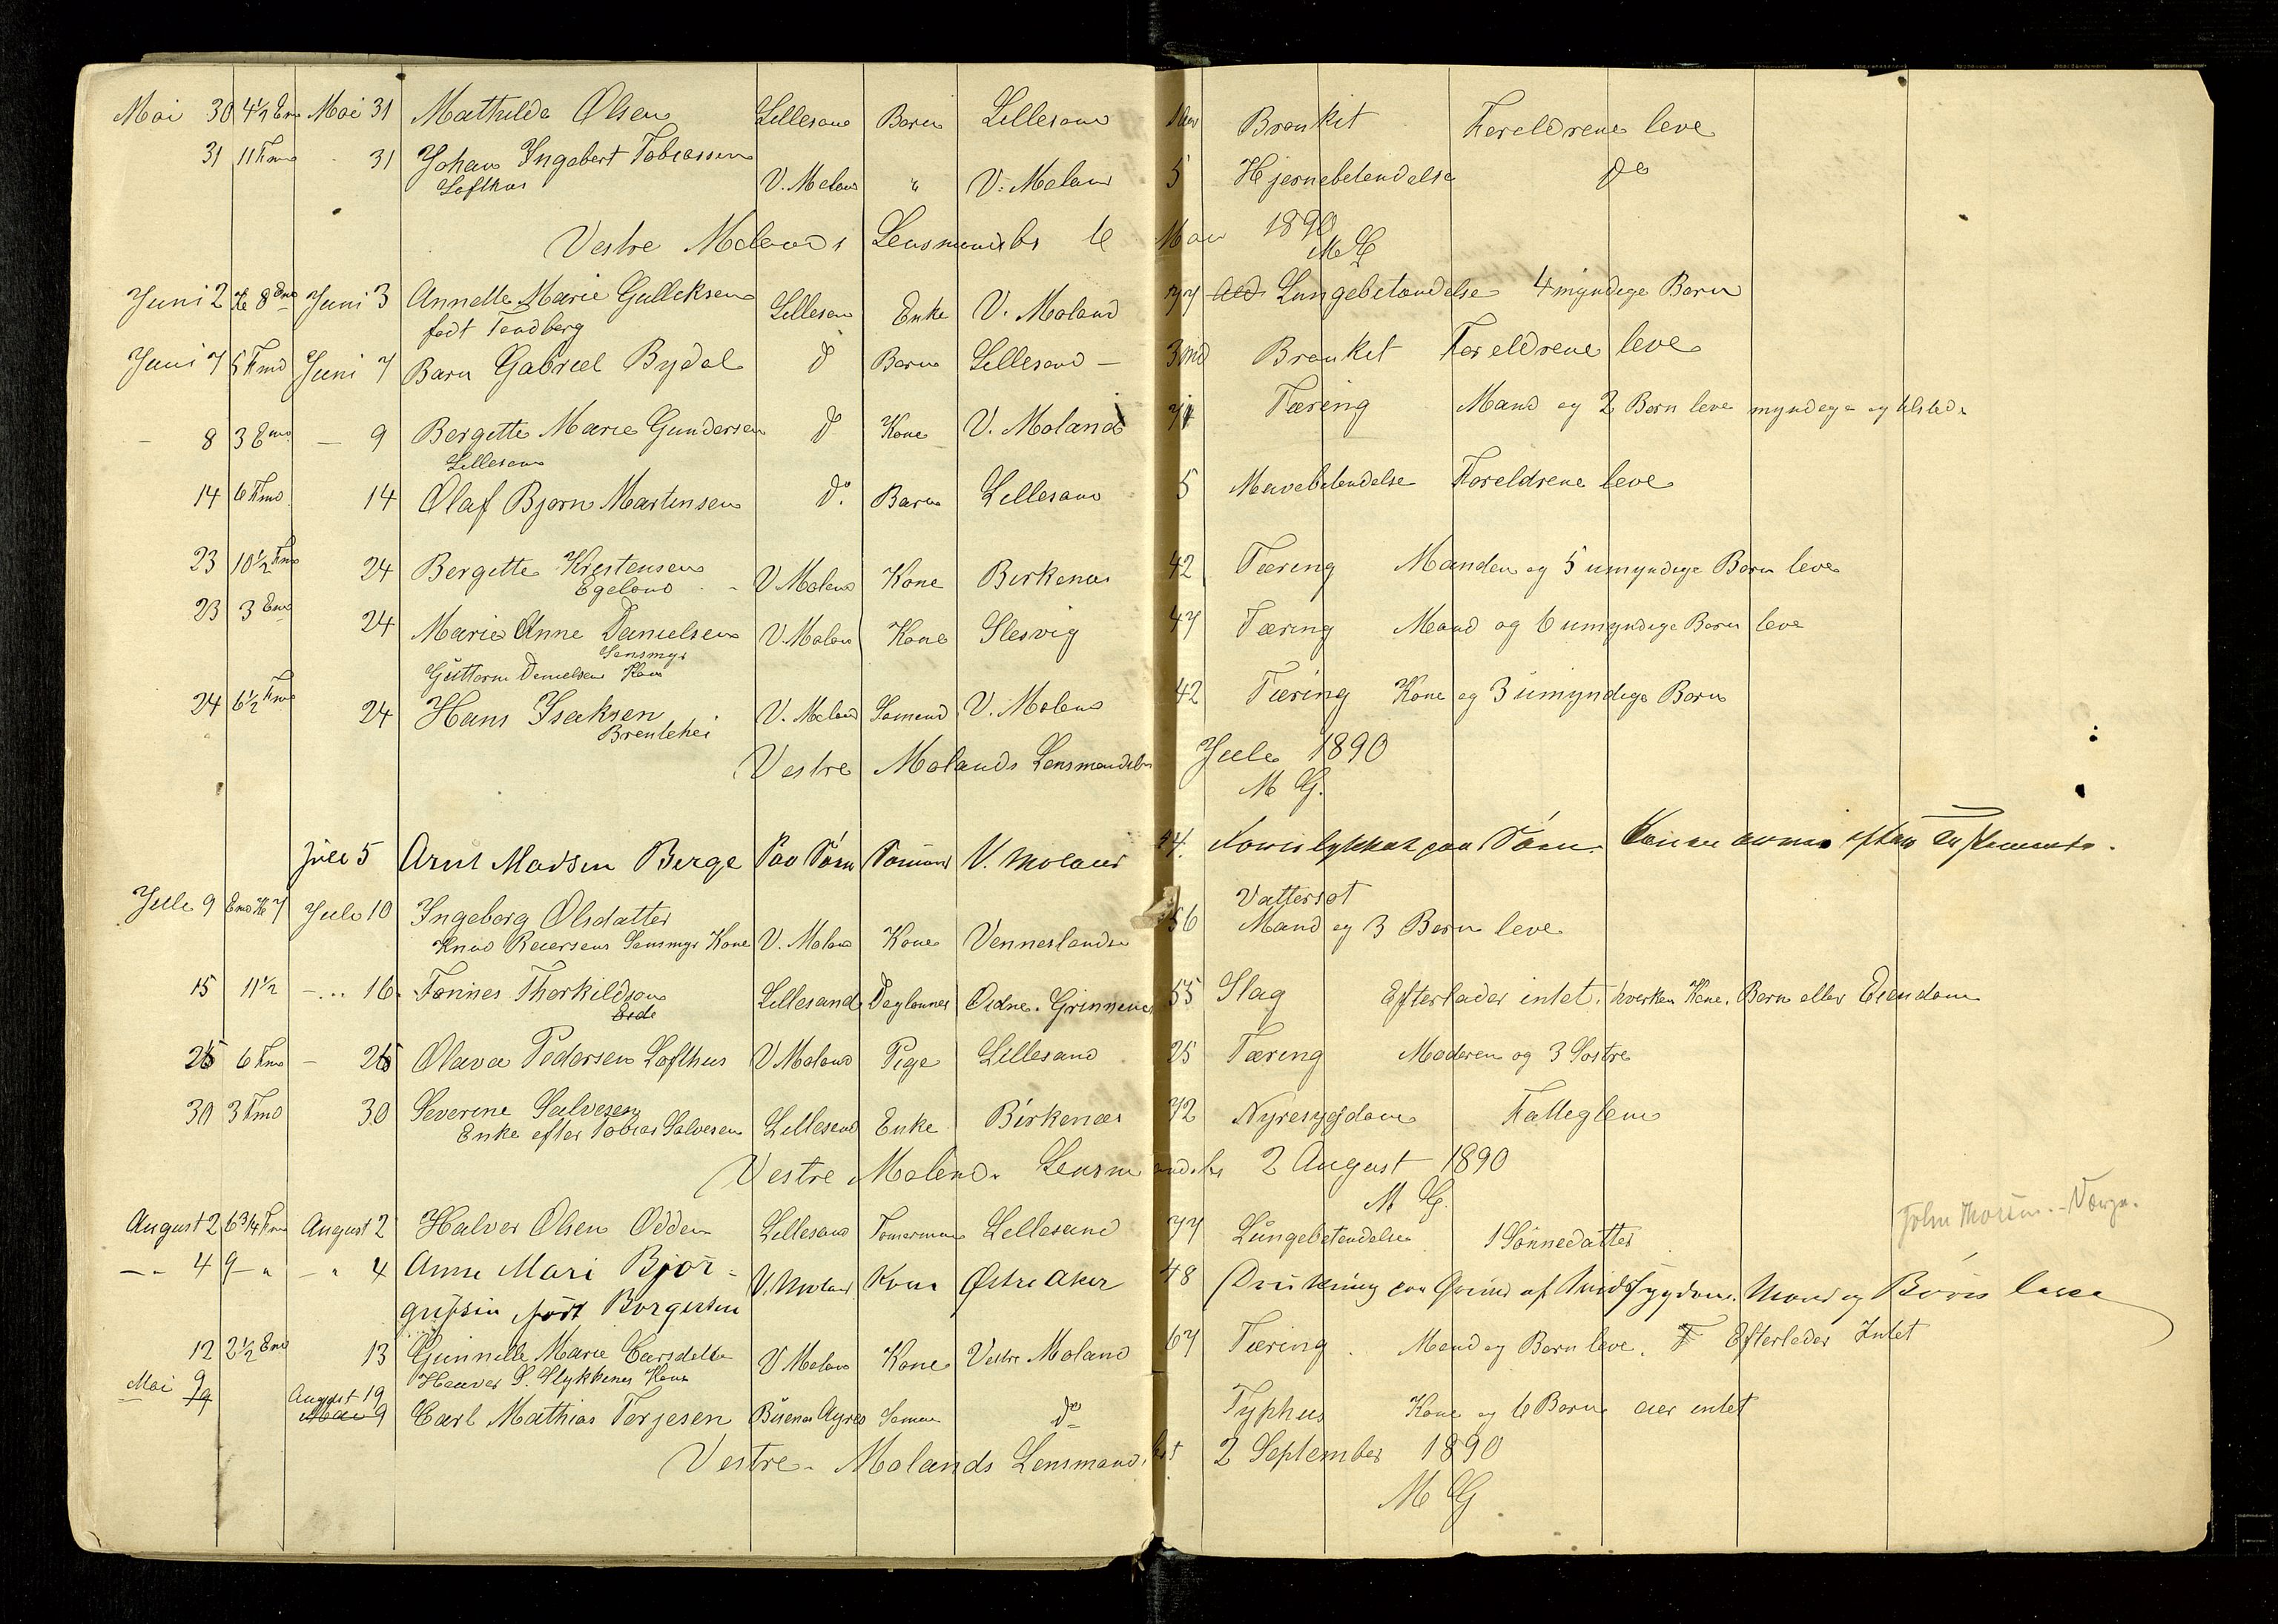 Mai 30 4½ Em Mai 31 Mathilde Olsen Lillesand Barn Lillesand Bronkit Foreldrene leve
31 11 Fmd 31 Johan Ingebert Tobiassen
Lofthus V. Moland " V. Moland 5 Hjernebetendelse do
Vestre Molands Lensmandsbs 1890
M G
Juni 2 Kl 8 Emd Juni 3 Annette Marie Gulleksen Lillesand Enke V. Moland 77 Lungebetendelse 4 myndige Barn
født Tandberg
Juni 7 5 Fmd Juni 7 Barn Gabriel Bydal d Barn Lillesand — 3 md Bronkit Foreldrene leve
— 8 3 Emd — 9 Bergette Marie Gundersen d Kone V. Moland Tæring Mand og 2 Børn leve myndige og tilstede
Lillesand
14 6 Fmd 14 Olaf Bjørn Martinsen do. Barn Lillesand 5 Mavebetendelse Foreldrene leve
23 10½ Fmd 24 Bergitte Kristensen
Egeland V Moland Kone Birkenæs 42 Tæring Manden og 5 umyndige Børn leve
23 3 Emd 24 Marie Anne Danielsen V. Moland Kone Slesvig 47 Tæring Mand og 6 umyndige Barn leve
Sansmyr
Guttorm Danielsens Kone
24 6½ Fmd 24 Hans Isaksen V. Moland Sømand V. Moland 42 Tæring Kone og 3 umyndige Barn
Brentehei
Vestre Molands Lensmandsbs Juli 1890
M G.
Juli 5 Arnt Madsen Berge Paa Søen Sømand V. Moland 44. Forulykket paa Søen.
Juli 9 Emd Kl 7 Juli 10 Ingeborg Olsdatter Vattersot
Knud Reiersens Sansmyr Kone V. Moland Kone Vennesland 56 Mand og 3 Børn leve
15 11½ — 16. Tønnes Thorkildsen Lillesand Daglønner Oidne. Grimnes 55 Slag Efterlader intet, hverken Kone, Børn eller Eiendom
Eide
25 6 Fmd — 26 Olava Pedersen Lofthus V Moland Pige Lillesand 25 Tæring Moderen og 3 Søstre
30 3 Fmd 30 Severine Salvesen
Enke efter Tobias Salvesen Lillesand Enke Birkenæs 72 Nyresygdom Fattiglem
Vestre Molands Lensmandsbs 2 August 1890
M G.
August 2 6 3/4 Fmd August 2 Halvor Olsen Odden Lillesand Tømermand Lillesand 77 Lungebetendelse 1 Sønnedatter
-- 4 9 - " - " 4 Anne Mari Bjør- V. Moland Kone Østre Aker 48 Drukning paa Grund af Sindssygdom. Mand og Børn leve
gufsen født Borgersen
12 2½ Emd 13 Gunnille Marie Larsdatter V Moland Kone Vestre Moland 67 Tæring. Mand og Barn leve. Efterlader Intet
S. Stykkenes Kone
Mai 9 August 19
Mai 9 Carl Mathias Terjesen Buenos Ayres Sømand do Typhus Kone og 6 Børn eier intet
Vestre Molands Lensmandsbst 2 September 1890
M G